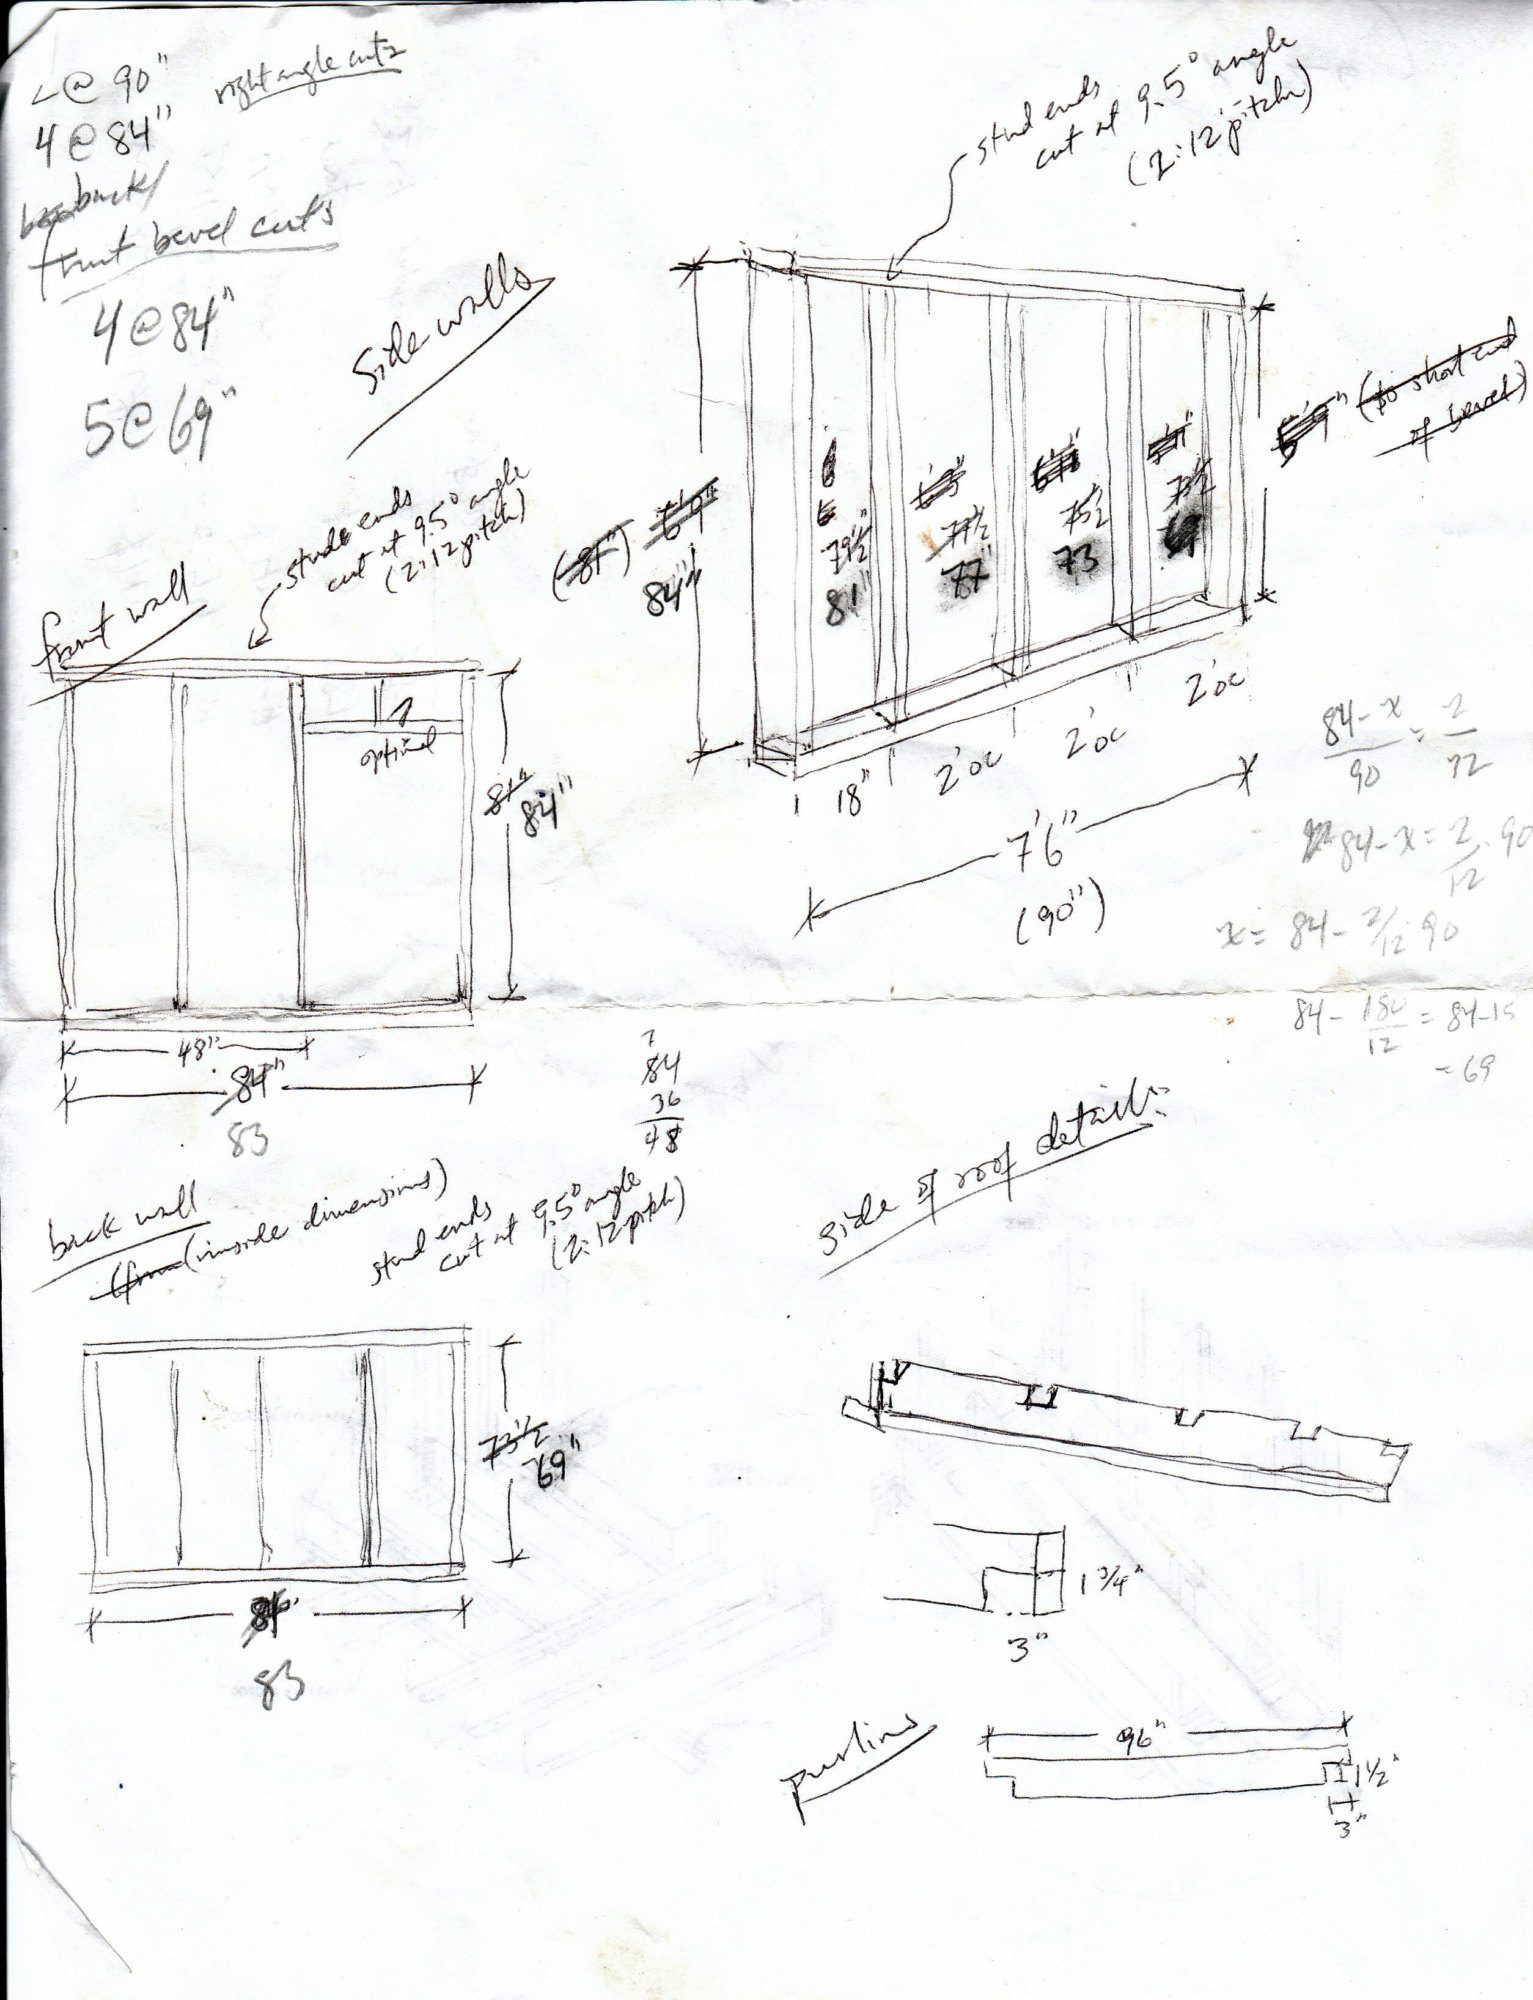 @ 90"
4 @ 84"
right angle cuts
back/
front bevel cuts
4 @ 84"
5 @ 69"
Side walls
stud ends
cut at 9.5° angle
(2:12 pitch)
(81") 6'9"
84"
79½"
81"
77½
77"
75½
73
73½
69
(to short end
of bevel)
18"
2' oc
2' oc
2' oc
7'6"
(90")
84-x/90 = 2/12
84-x = 2/12 · 90
x = 84 - 2/12 · 90
84 - 180/12 = 84-15
= 69
front wall
stud ends
cut at 9.5° angle
(2:12 pitch)
optional
81"
84"
48"
84"
83
84
36
48
back wall
(inside dimensions)
stud ends
cut at 9.5° angle
(2:12 pitch)
73½
69"
84"
83
side of roof detail:
1 3/4"
3"
purlins
96"
1½"
3"